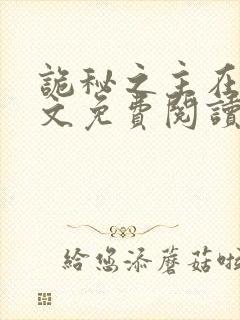 詭秘之主在
文免費閱讀
給您添蘑菇啦